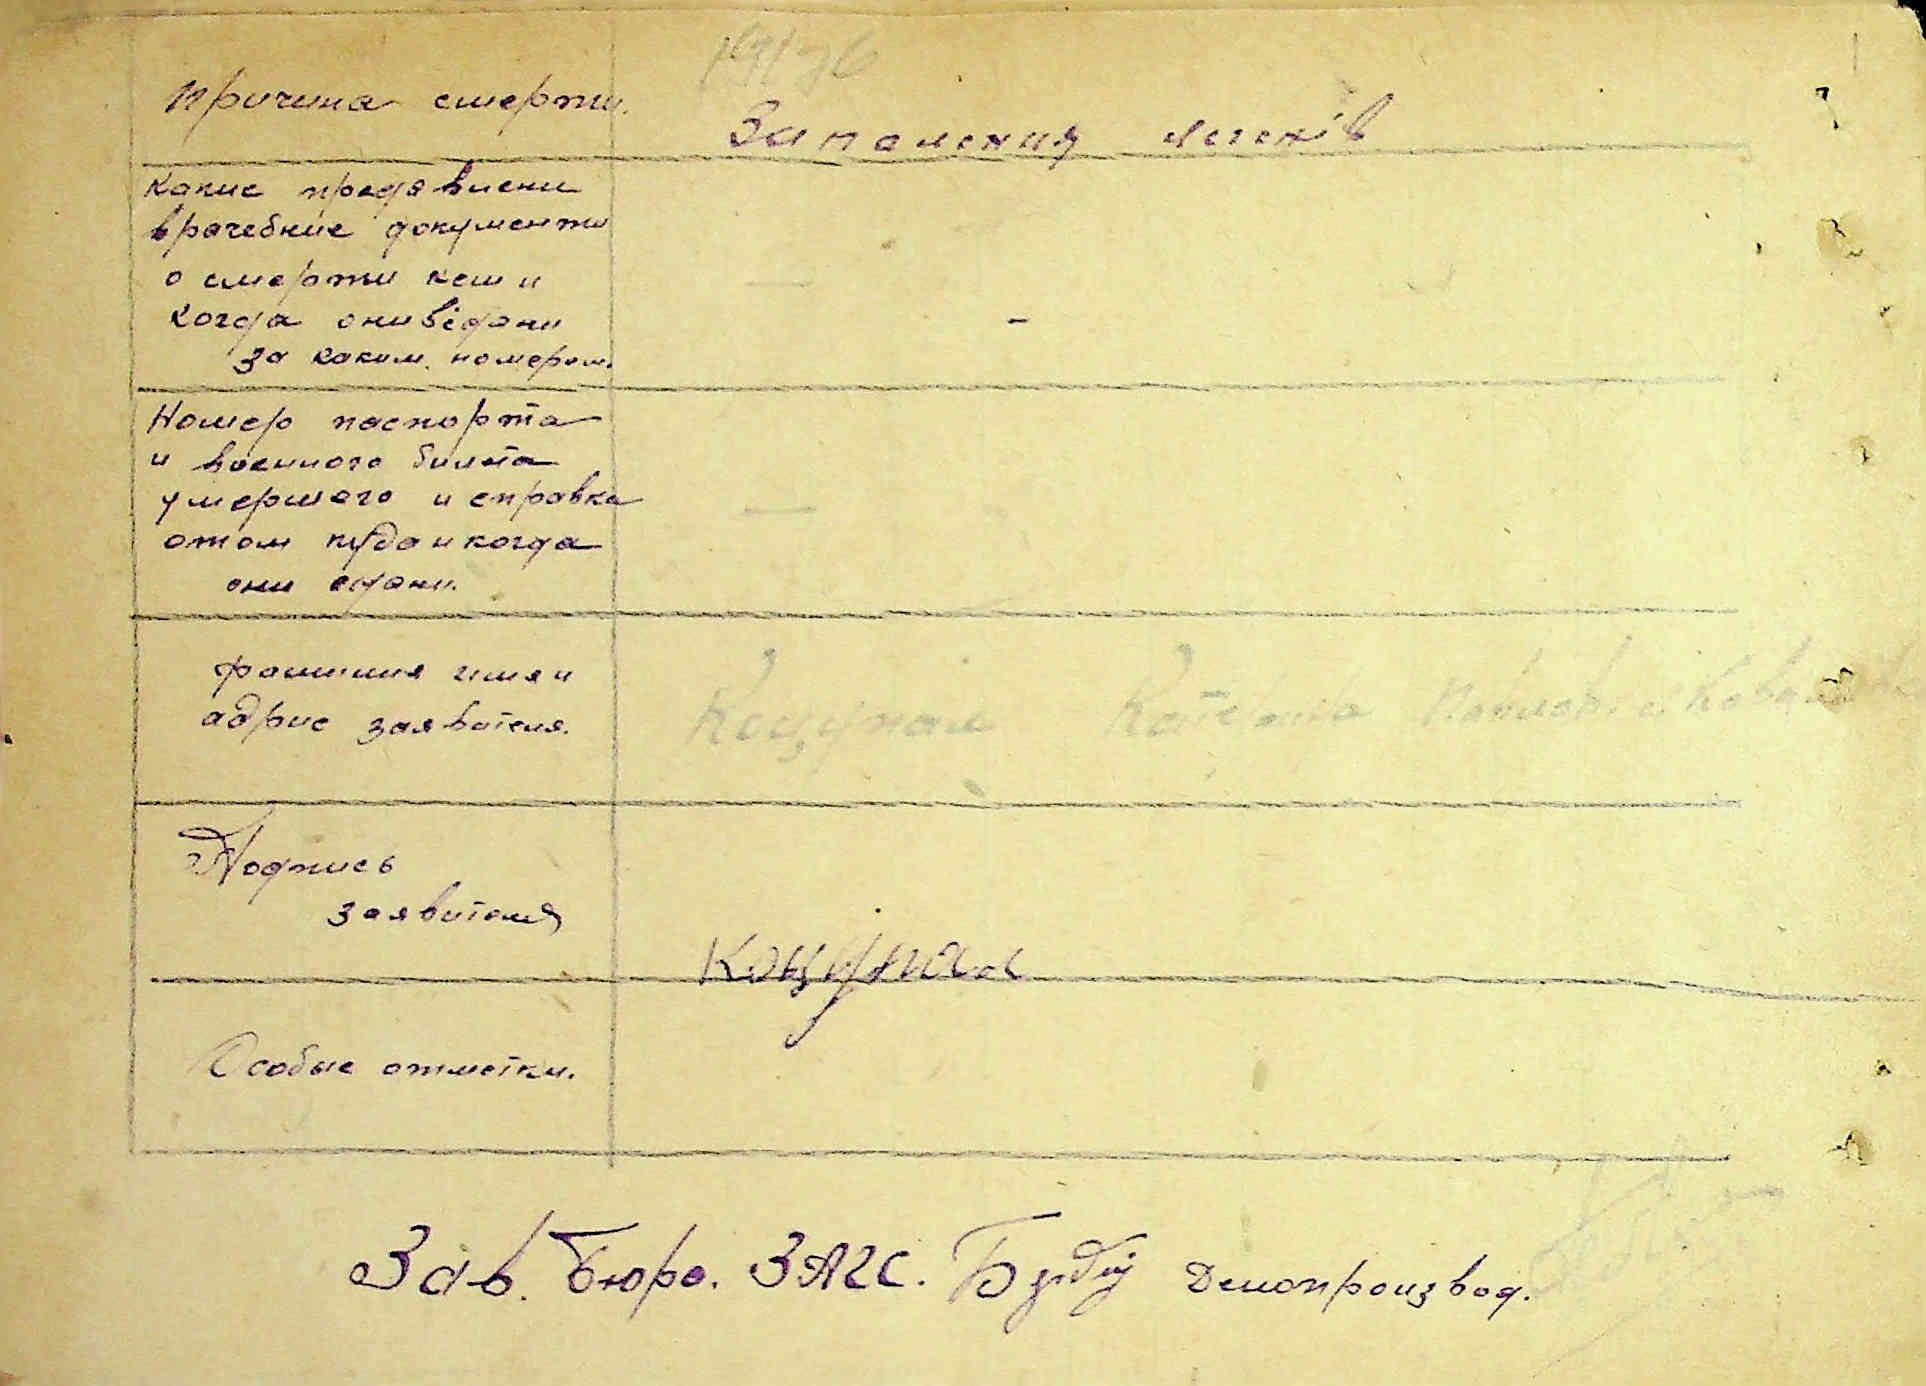 Причина смерти.
Запаления легенів
Какие предявлени
врачебние документи
о смерти кем и
когда они вiдани
за каким номером.
Номер паспорта
и военного билета
умершего и справка
отом куда и когда
они сдани.
фамилия имя и
адрис заявителя.
Коцупал Катерина
Подпись
заявителя
Коцупал
Особые отметки.
Зав. Бюро. ЗАГС. Делопроизвод.